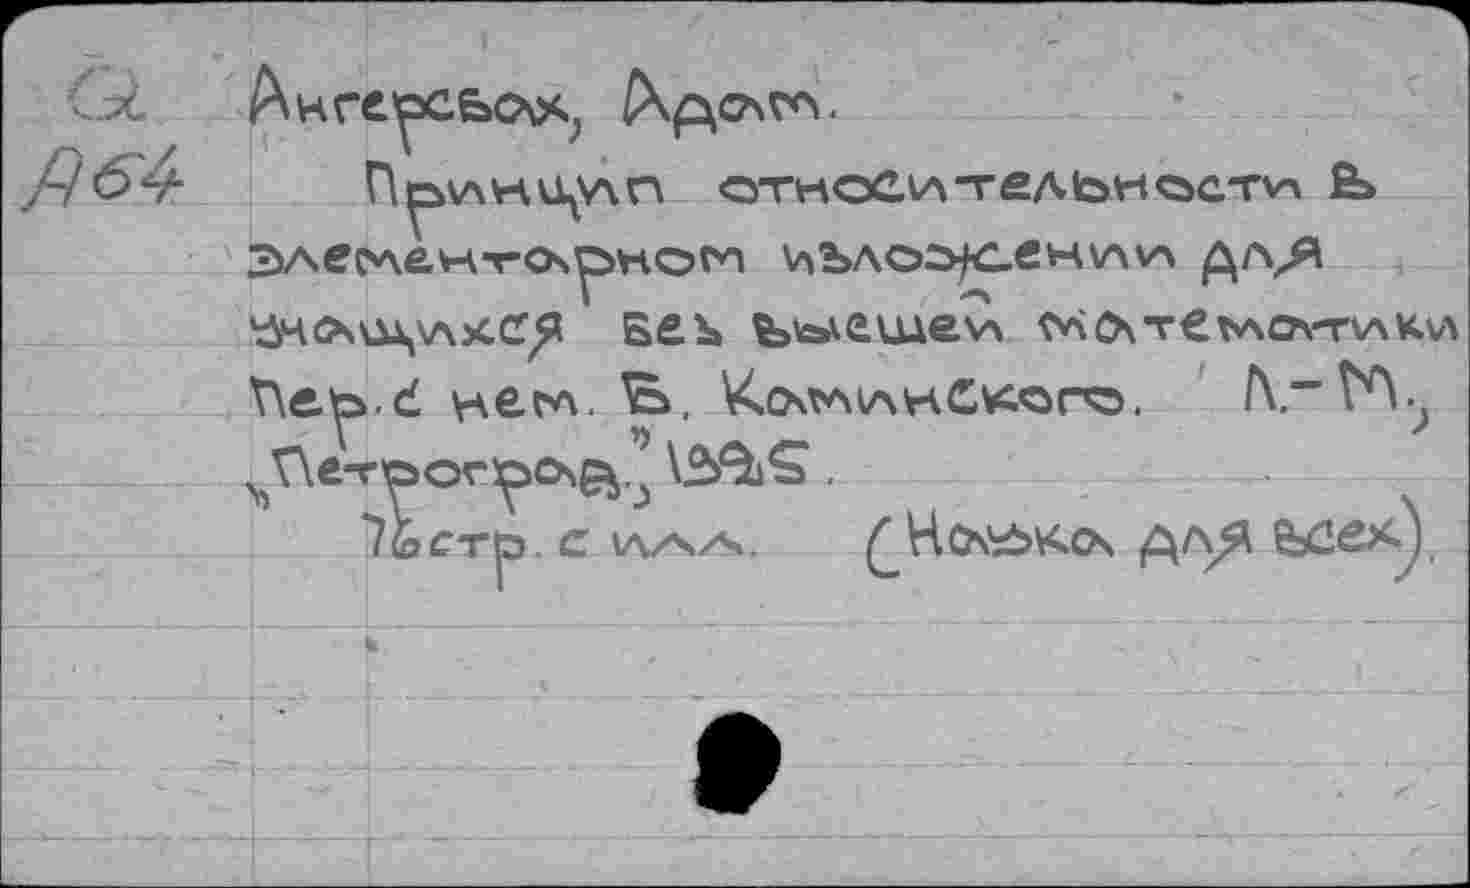 Ангерсбах, Адам.
А64
Принцип относительности в
элементарном изложении для
учащихся без высшей математики
Пер. с нем. В. Каминского. Л.-М.,
„Петроград", 1925.
76 стр. с илл. (Наука для всех).